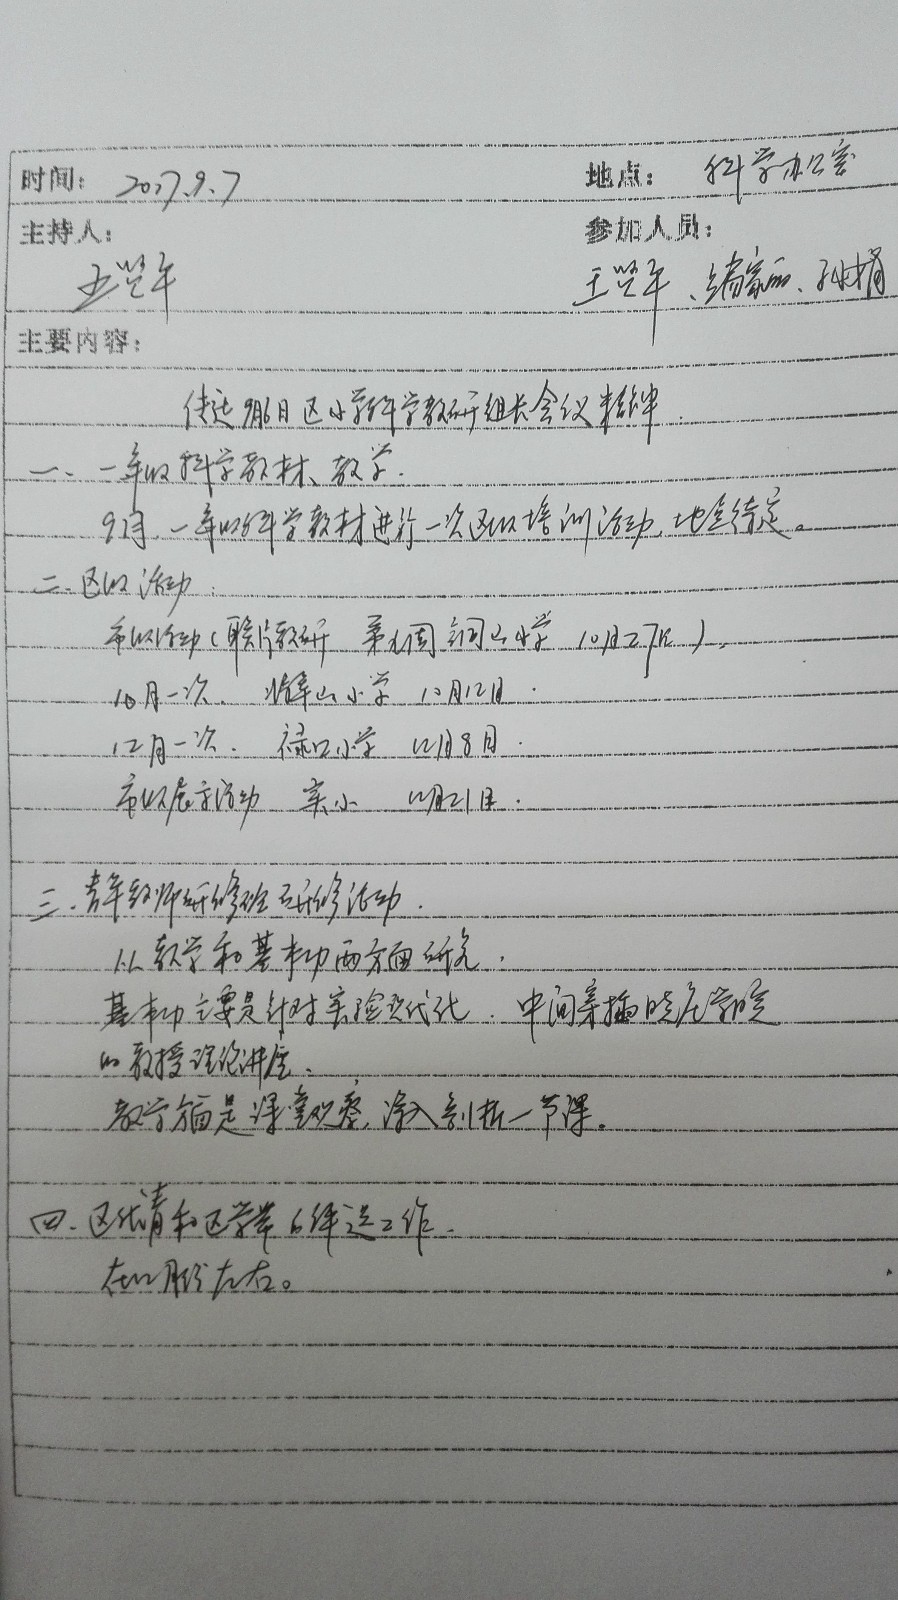 时间： 2017.9.7 地点： 科学办公室
主持人： 参加人员：
王学年 王学年、
主要内容：
传达9月6日区小学科学教研组长会议精神.
一、一年级科学教材、教学.
9月,一年级科学教材进行一次区级培训活动,地点待定。
二.区级活动:
市级活动(联片教研 第九周 小学 10月27日),
10月一次. 山小学 10月12日.
12月一次. 禄口小学 12月8日.
市级展示活动 实小 12月21日.
三.青年教师研修班研修活动.
从教学和基本功两方面研究.
基本功主要是针对实验现代化. 中间穿插晓庄学院
的教授理论讲座.
教学方面是课堂观察,深入剖析一节课。
四.区优青和区学带的评选工作.
在12月份左右。